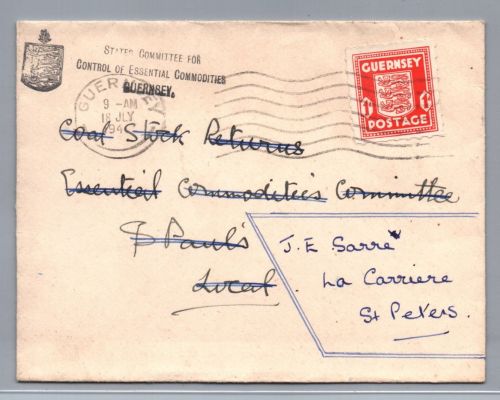 STATES COMMITTEE FOR
CONTROL OF ESSENTIAL COMMODITIES
GUERNSEY.
GUERNSEY
9 - AM
18 JLY
194
GUERNSEY
1D 1D
POSTAGE
Coal Stock Returns
Essential Commodities Committee
St Paul's
Local
J. E Sarre
La Carriere
St Peters.